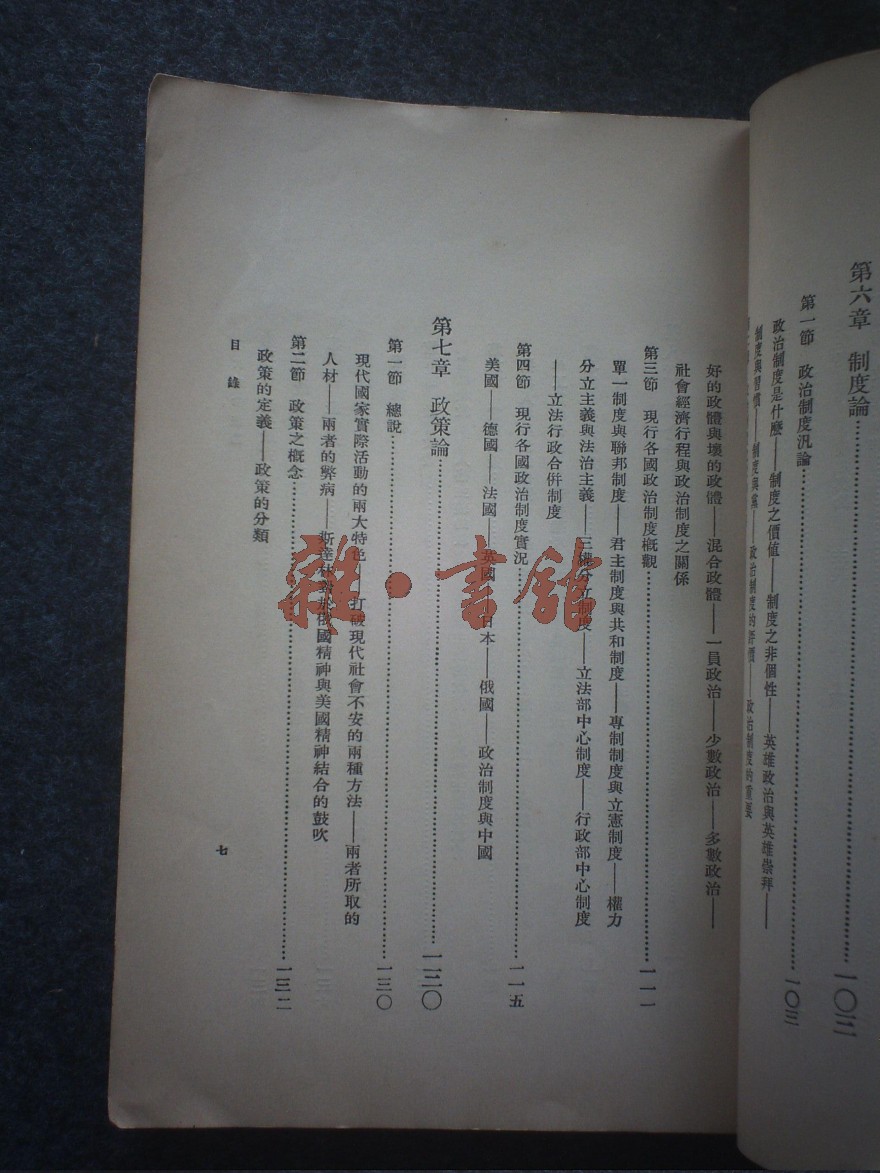 第六章　制度論……一〇三
第一節　政治制度汎論……一〇三
政治制度是什麼——制度之價値——制度之非個性——英雄政治與英雄崇拜——
制度與習慣——制度與黨——政治制度的評價——政治制度的重要
好的政體與壞的政體——混合政體——一員政治——少數政治——多數政治——
社會經濟行程與政治制度之關係
第三節　現行各國政治制度概觀……一一一
單一制度與聯邦制度——君主制度與共和制度——專制制度與立憲制度——權力
分立主義與法治主義——三權分立制度——立法部中心制度——行政部中心制度
——立法行政合併制度
第四節　現行各國政治制度實況……一一五
美國——德國——法國——英國——日本——俄國——政治制度與中國
第七章　政策論……一三〇
第一節　總說……一三〇
現代國家實際活動的兩大特色——打破現代社會不安的兩種方法——兩者所取的
人材——兩者的弊病——斯達林對於俄國精神與美國精神結合的鼓吹
第二節　政策之概念……一三二
政策的定義——政策的分類
目錄
七
雜·書館